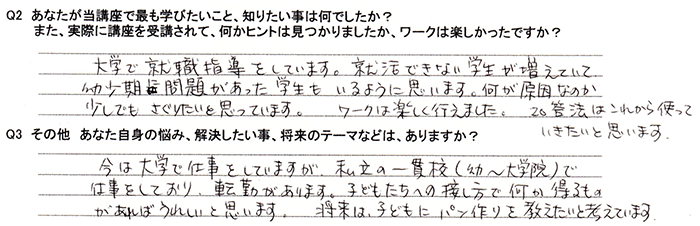 Q2 あなたが当講座で最も学びたいこと、知りたい事は何でしたか？
また、実際に講座を受講されて、何かヒントは見つかりましたか、ワークは楽しかったですか？
大学で就職指導をしています。就活できない学生が増えていて
幼少期に問題があった学生もいるように思います。何が原因なのか
少しでもさぐりたいと思っています。 ワークは楽しく行えました。 20答法はこれから使って
いきたいと思います。
Q3 その他 あなた自身の悩み、解決したい事、将来のテーマなどは、ありますか？
今は大学で仕事をしていますが、私立の一貫校（幼〜大学院）で
仕事をしており、転勤があります。子どもたちへの接し方で何か得るもの
があればうれしいと思います。 将来は、子どもにパン作りを教えたいと考えています。